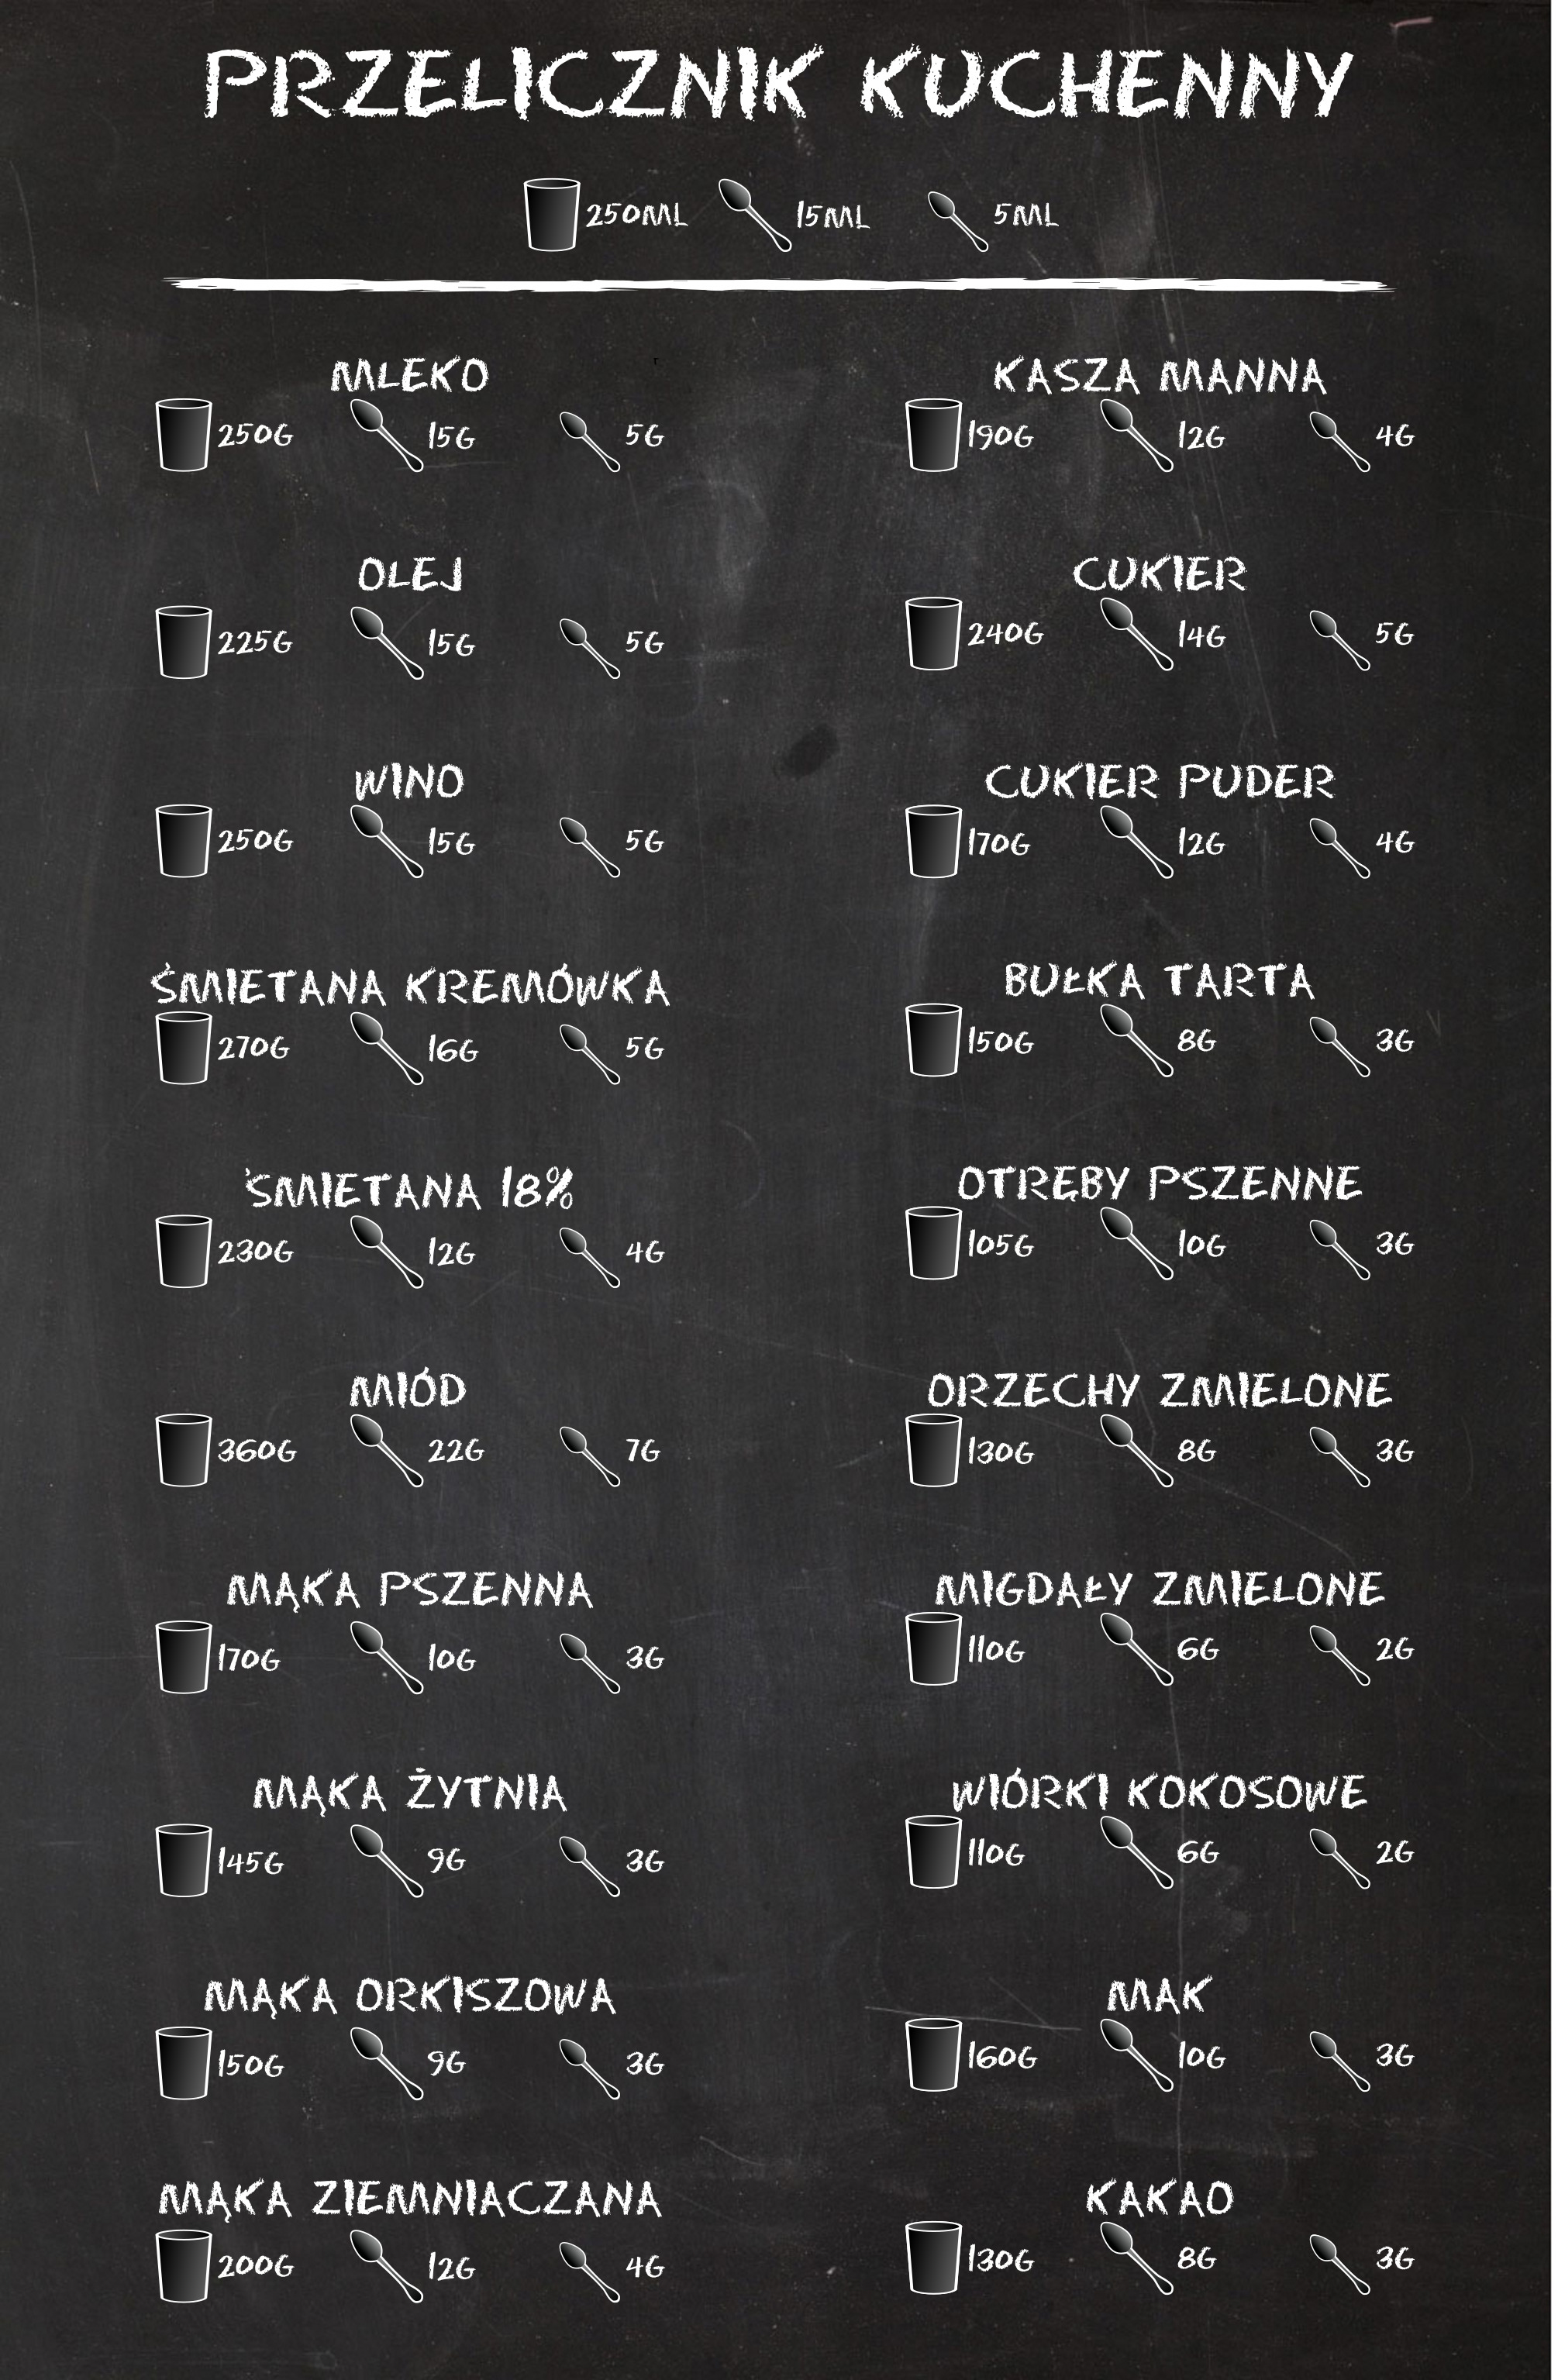 PRZELICZNIK KUCHENNY
250ML 15ML 5ML
MLEKO
250G 15G 5G
KASZA MANNA
190G 12G 4G
OLEJ
225G 15G 5G
CUKIER
240G 14G 5G
WINO
250G 15G 5G
CUKIER PUDER
170G 12G 4G
ŚMIETANA KREMÓWKA
270G 16G 5G
BUŁKA TARTA
150G 8G 3G
ŚMIETANA 18%
230G 12G 4G
OTRĘBY PSZENNE
105G 10G 3G
MIÓD
360G 22G 7G
ORZECHY ZMIELONE
130G 8G 3G
MĄKA PSZENNA
170G 10G 3G
MIGDAŁY ZMIELONE
110G 6G 2G
MĄKA ŻYTNIA
145G 9G 3G
WIÓRKI KOKOSOWE
110G 6G 2G
MĄKA ORKISZOWA
150G 9G 3G
MAK
160G 10G 3G
MĄKA ZIEMNIACZANA
200G 12G 4G
KAKAO
130G 8G 3G